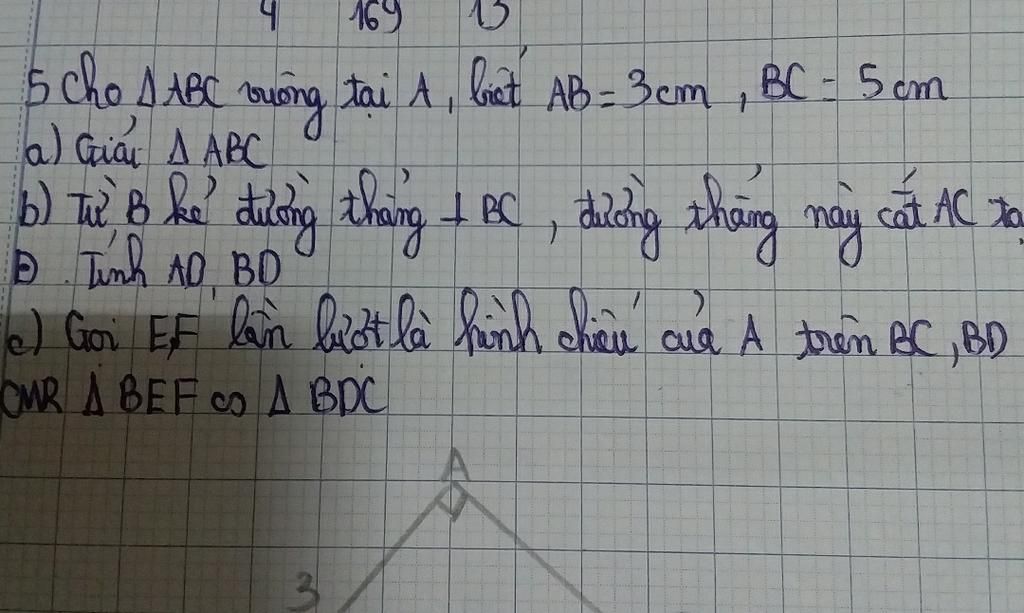 4 169 13
5 Cho Δ ABC vuông tại A, biết AB = 3cm, BC = 5cm
a) Giải Δ ABC
b) Từ B kẻ đường thẳng ⊥ BC, đường thẳng này cắt AC tạ
D. Tính AD, BD
c) Gọi E,F lần lượt là hình chiếu của A trên BC, BD
CMR Δ BEF ∽ Δ BDC
A
3